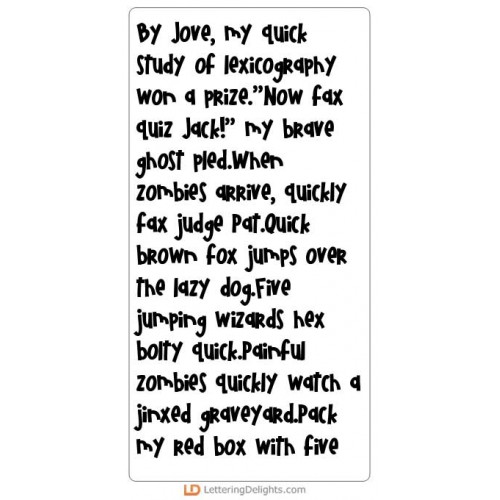 By Jove, my quick
study of lexicography
won a prize."Now fax
quiz Jack!" my brave
ghost pled.When
zombies arrive, quickly
fax judge Pat.Quick
brown fox jumps over
the lazy dog.Five
jumping wizards hex
bolty quick.Painful
zombies quickly watch a
jinxed graveyard.Pack
my red box with five
LD LetteringDelights.com